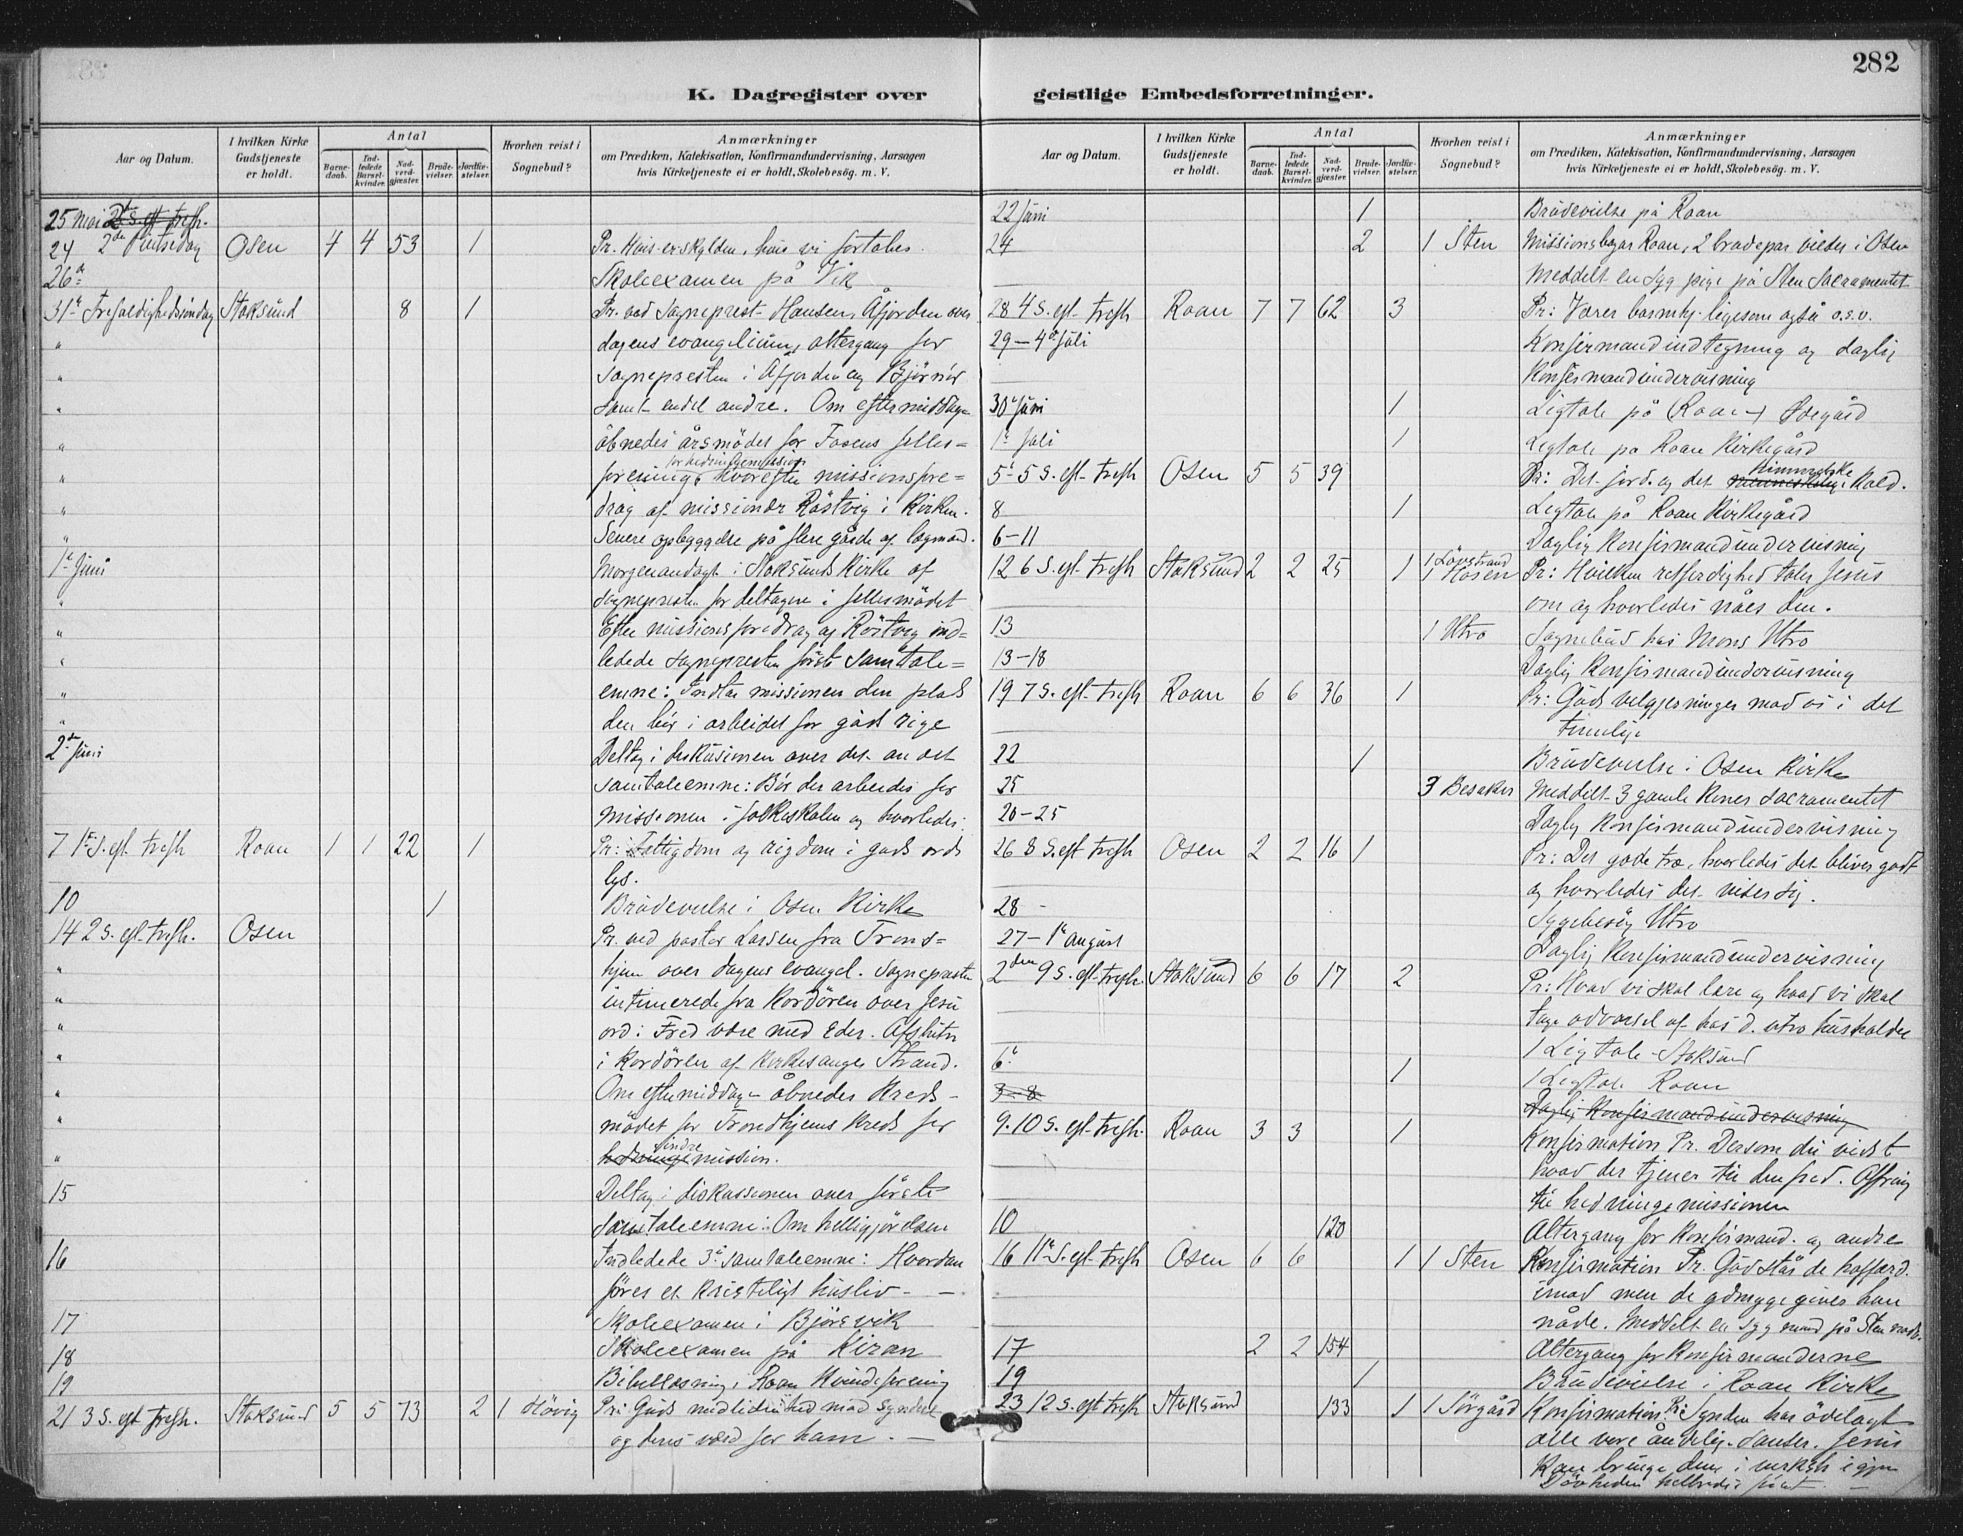 282
K. Dagregister over geistlige Embedsforretninger.
Aar og Datum. I hvilken Kirke Gudstjeneste er holdt. Antal Barnedaab. Indledede Barselkvinder. Nadverdgjæster. Brudevielser. Jordfæstelser. Hvorhen reist i Sognebud? Anmærkninger om Prædiken, Katekisation, Konfirmandundervisning, Aarsagen hvis Kirketjeneste ei er holdt, Skolebesøg. m. V.
25 Mai
24 2den Pintsedag Osen 4 4 53 1 Pr. Hvis er skylden, hvis vi fortabes.
26de Skoleexamen på Vik
31te Trefoldighedsøndag Stoksund 8 1 Pr. ved Sogneprest Hansen, Åfjorden over
" dagens evangelium, altergang for
" sognepresten i Åfjorden og Bjørnør
" samt endel andre. Om eftermiddagen
" åbnedes årsmødet for Fosens felles=
" forening hvorefter missionsfore=
" drag af missionær Røstvig i Kirken.
" Senere opbyggelse på flere gårde af lægmænd.
1te Juni Morgenandagt i Stoksunds Kirke af
" sognepresten for deltagere i fellesmødet
" Efter missionsforedrag af Røstvig ind=
" ledede sognepresten første samtale=
" emne: Indtar missionen den plads
" den bør i arbeidet for guds rige
2den Juni Deltog i diskusionen over det andet
samtaleemne: Bør der arbeides for
missionen i folkeskolen og hvorledes.
7 1ste S. eft. trefh Roan 1 1 22 1 Pr: Fattigdom og rigdom i guds ords
lys.
10 1 Brudevielse i Osen Kirke
14 2 S. eft. trefh. Osen Pr. ved pastor Lassen fra Trond=
" hjem over dagens evangel. Sognepresten
" intimerede fra Kordøren over Jesu
" ord: Fred være med Eder. Afsluttn
" i Kordøren af Kirkesanger Strand.
" Om eftermiddagen åbnedes Kreds-
" mødet for Trondhjems Kreds for
" indre mission.
15 Deltog i diskussionen over første
Samtaleemne: Om helliggjørelsen
16 Indledede 3die samtaleemne: Hvordan
føres et kristeligt husliv. —
17 Skoleexamen i Bjørsvik
18 Skoleexamen på Kiran
19 Bibellesning i Roan Kvindeforening
21 3 S. eft trefh. Stoksund 5 5 73 2 1 Høvig Pr: Guds medlidenhed med syndere
og deres værd for ham. —
Aar og Datum. I hvilken Kirke Gudstjeneste er holdt. Antal Barnedaab. Indledede Barselkvinder. Nadverdgjæster. Brudevielser. Jordfæstelser. Hvorhen reist i Sognebud? Anmærkninger om Prædiken, Katekisation, Konfirmandundervisning, Aarsagen hvis Kirketjeneste ei er holdt, Skolebesøg. m. V.
22 Juni 1 Brudevielse på Roan
24 2 1 Sten Missionsbazar Roan, 2 brudepar viedes i Osen
Meddelt en syg pige på Sten Sacramentet
28 4 S. eft. trefh Roan 7 7 62 3 Pr: Værer barmhj. ligesom også o.s.v.
29 – 4de Juli Konfirmandindtegning og daglig
Konfirmandundervisning
30te Juni 1 Ligtale på (Roan)
1te Juli 1 Ligtale på Roan Kirkegård
5te 5 S. eft. trefh Osen 5 5 39 Pr: Det jord. og det himmelske Kald.
8 1 Ligtale på Roan Kirkegård
6–11 Daglig Konfirmandundervisning
12 6 S. eft. trefh Stoksund 2 2 25 1 1 Løvstrand 1 Hosen Pr: Hvilken retferdighed taler Jesus
om og hvorledes nåes den.
13 1 Utro Sognebud hos Mons Utro
13–18 Daglig Konfirmandundervisning
19 7 S. eft. trefh Roan 6 6 36 1 Pr: Guds velgjerninger mod os i det
timelige
22 1 Brudevielse i Osen Kirke
25 3 Besaker Meddelt 3 gamle Koner sacramentet
20–25 Daglig Konfirmandundervisning
26 8 S. eft trefh Osen 2 2 16 1 Pr: Det gode træ, hvorledes det bliver godt
og hvorledes det viser sig.
28 - Sygebesøg Utro
27 – 1te August Daglig Konfirmandundervisning
2den 9 S. eft. trefh. Stoksund 6 6 17 2 Pr: Hvad vi skal lære og hvad vi skal
tage advarsel af hos d. utro husholder
1 Ligtale Stoksund
6te 1 1 Ligtale Roan
3–8 Daglig Konfirmandundervisning
9. 10 S. eft. trefh. Roan 3 3 1 Konfirmation Pr. Dersom du vidst
hvad der tjener til den fred. Ofring
til hedningemissionen
10 120 Altergang for Konfirmand. og andre
16 11te S. eft. trefh Osen 6 6 1 1 Sten Konfirmation Pr. Gud står de hoffærd.
imod men de ydmyge giver han
nåde. Meddelt en syg mand på Sten nadv.
17 2 2 154 Altergang for Konfirmanderne
19 1 Brudevielse i Roan Kirke
23 12 S. eft trefh Stoksund 133 1 1 Sørgård Konfirmation: Pr: Synden har ødelagt
alle vore åndelig. Sanser. Jesus
Kan bringe dem i virksh igjen
Døvheden helbredes først. —